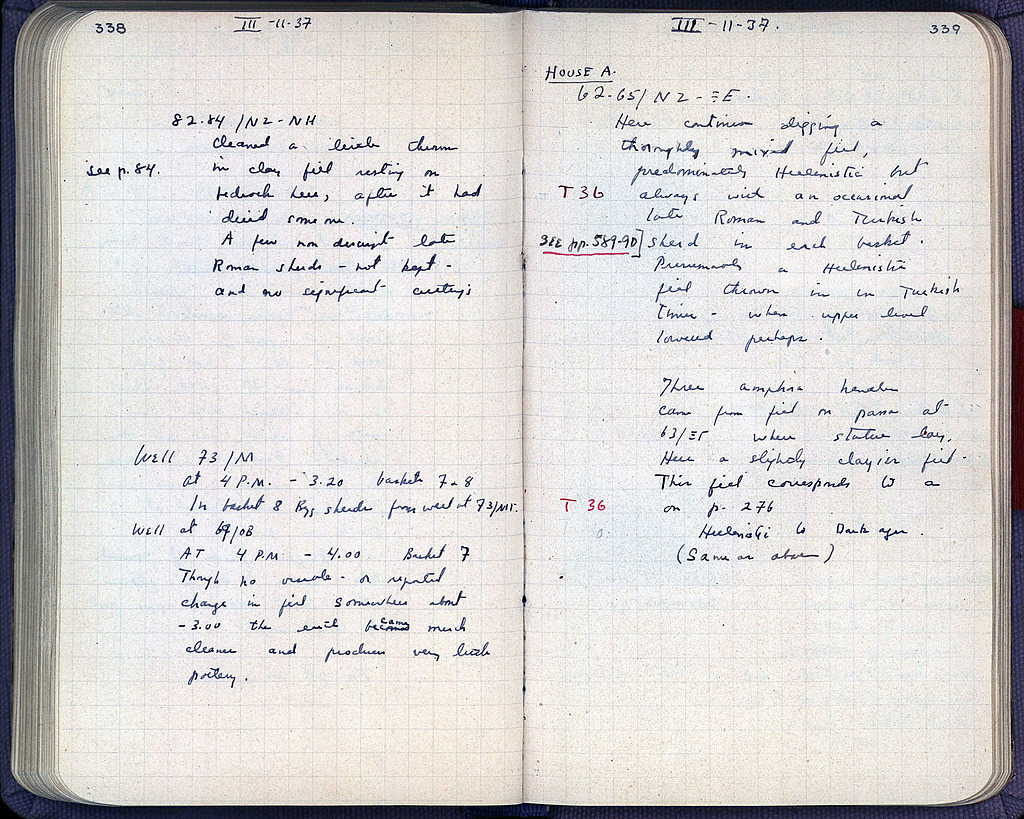 338
III -11-37
82.84 / NZ - NH
Cleaned a little throw
see p. 84.
in clay fill resting on
bedrock here, after it had
dried some.
A few non descript late
Roman sherds - not kept -
and no significant castings
Well 73/M
At 4 P.M. - 3.20 baskets 7-8
In basket 8 Byz sherds from well at 73/
Well at /OB
AT 4 P.M. - 4.00 Basket 7
Though no visible - or reported
change in fill somewhere about
-3.00 the earth became much
cleaner and produces very little
pottery.
III -11-37.
339
HOUSE A.
62.65/ NZ - ΞE.
Here continue digging a
thoroughly mixed fill,
predominately Hellenistic but
T 36
always with an occasional
late Roman and Turkish
SEE pp. 589-90]
sherd in each basket.
Presumably a Hellenistic
fill thrown in in Turkish
times - when upper level
lowered perhaps.
Three amphora handles
came from fill on at
63/ΞΓ where statue lay.
Here a slightly clayier fill.
This fill corresponds to a
T 36
on p. 276
Hellenistic to Dark ages.
(Same as above)